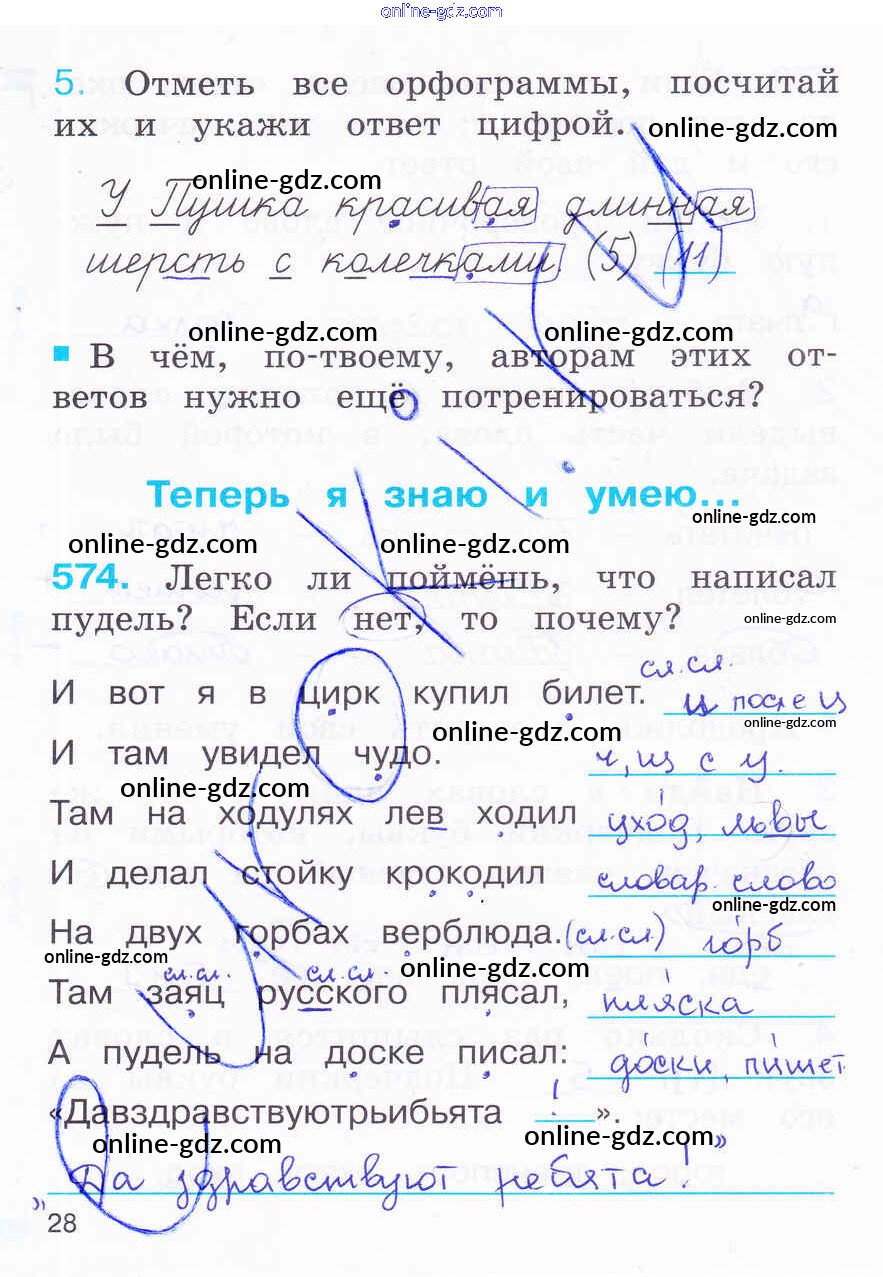 online-gdz.com
5. Отметь все орфограммы, посчитай
их и укажи ответ цифрой.
online-gdz.com
online-gdz.com
У Пушка красивая длинная
шерсть с колечками. (5) (11)
online-gdz.com
online-gdz.com
В чём, по-твоему, авторам этих от-
ветов нужно ещё потренироваться?
Теперь я знаю и умею...
online-gdz.com
online-gdz.com
online-gdz.com
574. Легко ли поймёшь, что написал
online-gdz.com
пудель? Если нет, то почему?
online-gdz.com
сл.сл.
И вот я в цирк купил билет. и после ц
online-gdz.com
online-gdz.com
И там увидел чудо. ч, из с у.
online-gdz.com
Там на ходулях лев ходил уход, львы
И делал стойку крокодил словар. слово
online-gdz.com
На двух горбах верблюда. (сл.сл) горб
online-gdz.com
online-gdz.com
сл.сл. сл.сл.
Там заяц русского плясал, пляска
А пудель на доске писал: доски, пишет
«Давздравствуютрьибьята ! ».
online-gdz.com
online-gdz.com
„Да здравствуют ребята!”
28